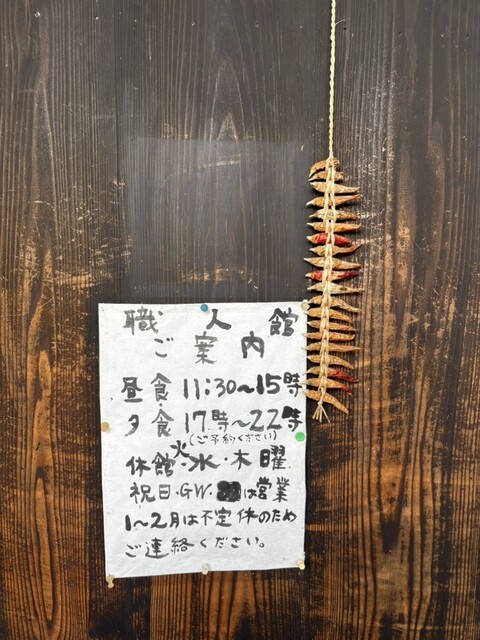 職人館
ご案内
昼食 11:30〜15時
夕食 17時〜22時
(ご予約ください)
休館 火・水・木曜
祝日・GW・は営業
1〜2月は不定休のため
ご連絡ください。